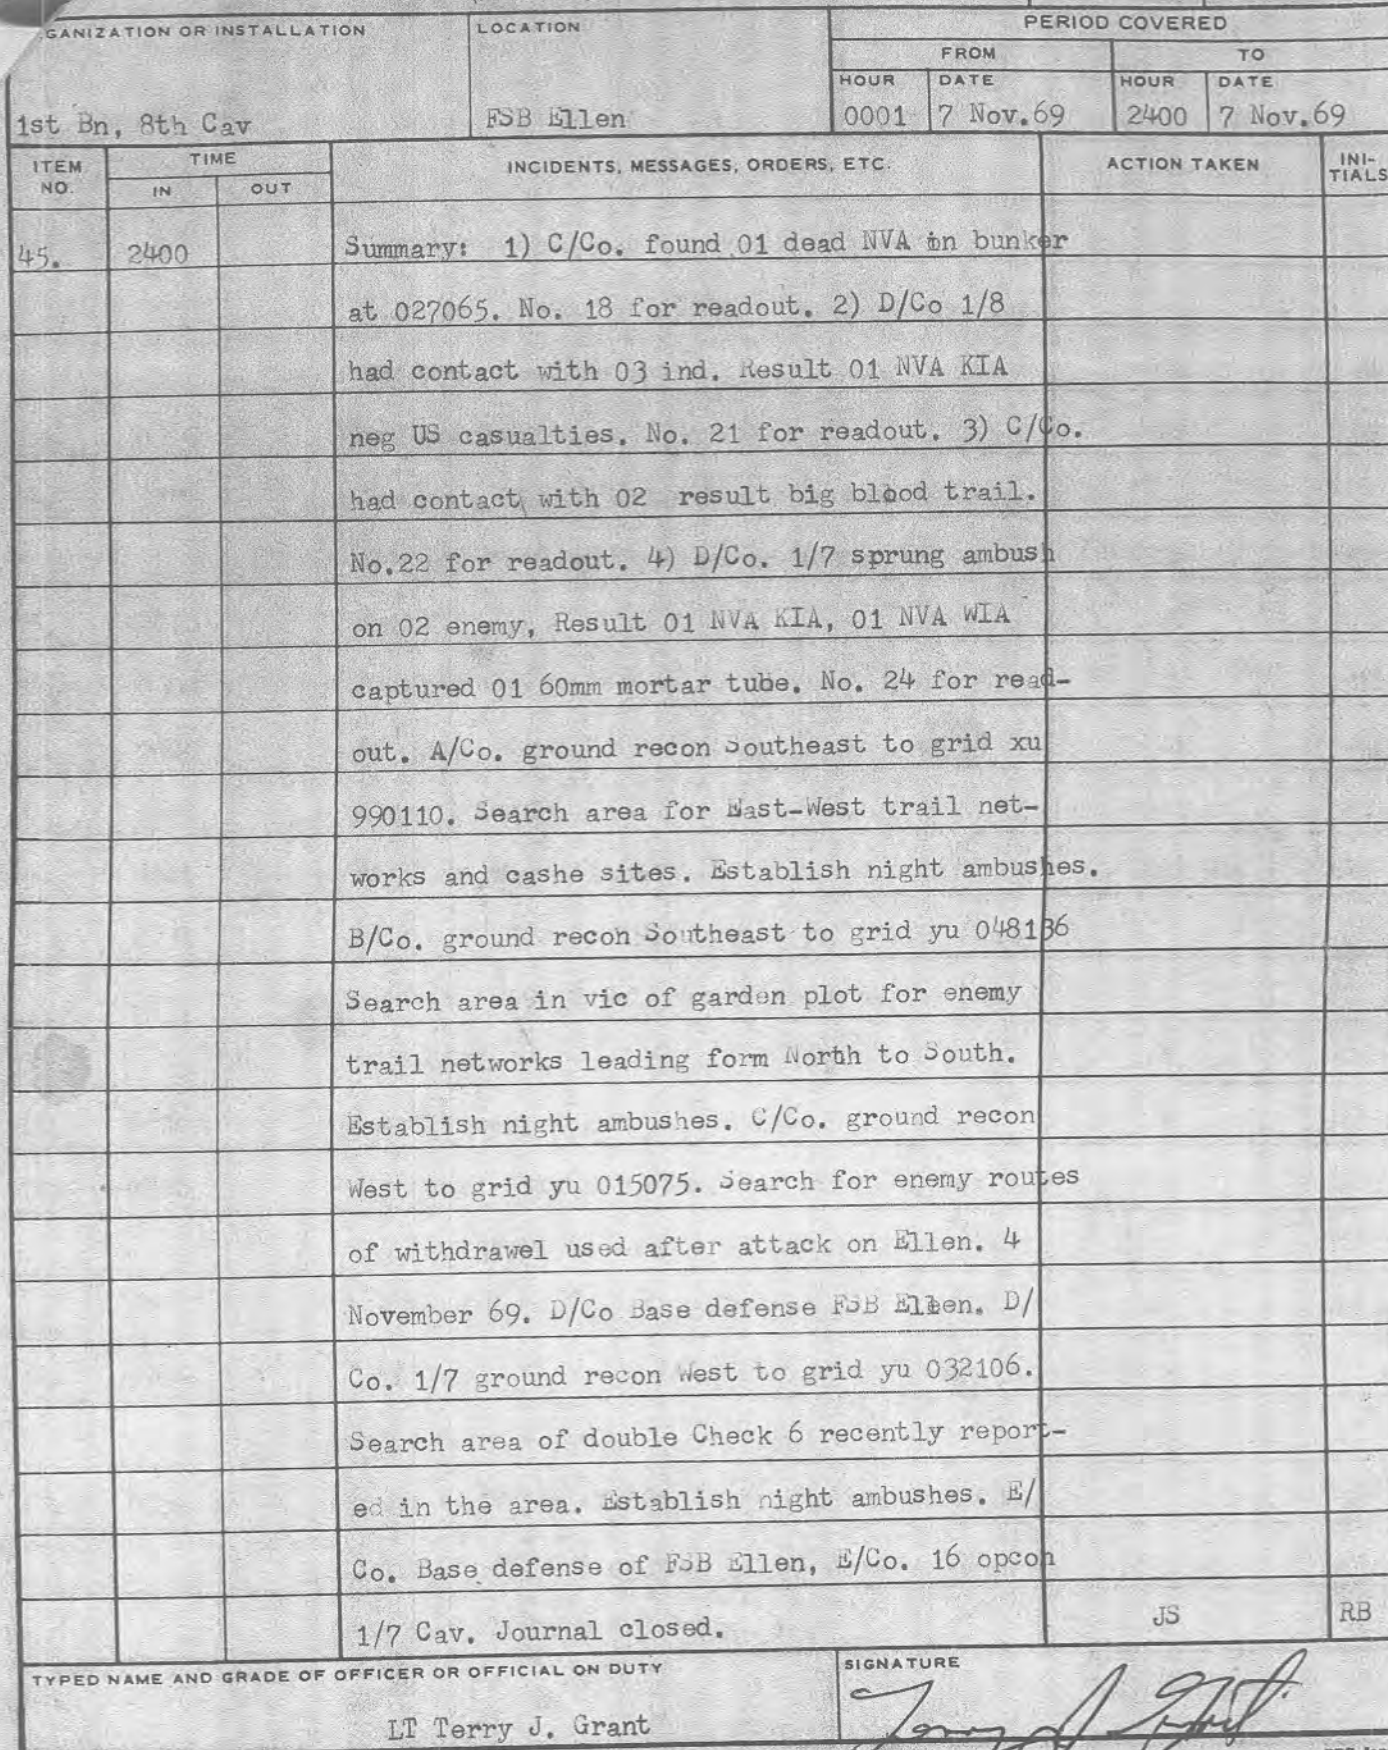 GANIZATION OR INSTALLATION
LOCATION
PERIOD COVERED
FROM
TO
HOUR
DATE
HOUR
DATE
1st Bn, 8th Cav
FSB Ellen
0001
7 Nov.69
2400
7 Nov.69
ITEM NO.
TIME
IN
OUT
INCIDENTS, MESSAGES, ORDERS, ETC.
ACTION TAKEN
INI-
TIALS
45.
2400
Summary: 1) C/Co. found 01 dead NVA in bunker
at 027065. No. 18 for readout. 2) D/Co 1/8
had contact with 03 ind. Result 01 NVA KIA
neg US casualties. No. 21 for readout. 3) C/Co.
had contact with 02 result big blood trail.
No.22 for readout. 4) D/Co. 1/7 sprung ambush
on 02 enemy, Result 01 NVA KIA, 01 NVA WIA
captured 01 60mm mortar tube. No. 24 for read-
out. A/Co. ground recon Southeast to grid xu
990110. Search area for East-West trail net-
works and cashe sites. Establish night ambushes.
B/Co. ground recon Southeast to grid yu 048136
Search area in vic of garden plot for enemy
trail networks leading form North to South.
Establish night ambushes. C/Co. ground recon
West to grid yu 015075. Search for enemy routes
of withdrawel used after attack on Ellen. 4
November 69. D/Co Base defense FSB Ellen. D/
Co. 1/7 ground recon West to grid yu 032106.
Search area of double Check 6 recently report-
ed in the area. Establish night ambushes. E/
Co. Base defense of FSB Ellen, E/Co. 16 opcon
1/7 Cav. Journal closed.
JS
RB
TYPED NAME AND GRADE OF OFFICER OR OFFICIAL ON DUTY
LT Terry J. Grant
SIGNATURE